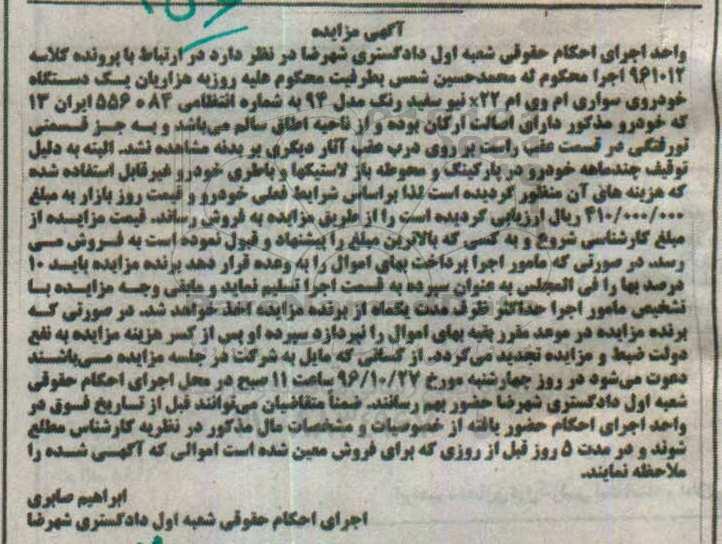 آگهی مزایده
واحد اجرای احکام حقوقی شعبه اول دادگستری شهرضا در نظر دارد در ارتباط با پرونده کلاسه
۹۶۱۰۱۲ اجرا محکوم له محمدحسین شمس بطرفیت محکوم علیه روزبه هزاریان یک دستگاه
خودروی سواری ام وی ام x۲۲ نیو سفید رنگ مدل ۹۴ به شماره انتظامی ۸۴ ه ۵۵۶ ایران ۱۳
که خودرو مذکور دارای اصالت ارکان بوده و از ناحیه اطاق سالم می‌باشد و به جز قسمتی
تورفتگی در قسمت عقب راست بر روی درب عقب آثار دیگری بر بدنه مشاهده نشد. البته به دلیل
توقیف چندماهه خودرو در پارکینگ و محوطه باز لاستیکها و باطری خودرو غیرقابل استفاده شده
که هزینه های آن منظور گردیده است لذا براساس شرایط فعلی خودرو و قیمت روز بازار به مبلغ
۳۱۰/۰۰۰/۰۰۰ ریال ارزیابی گردیده است را از طریق مزایده به فروش رساند. قیمت مزایده از
مبلغ کارشناسی شروع و به کسی که بالاترین مبلغ را پیشنهاد و قبول نموده است به فروش می
رسد در صورتی که مامور اجرا پرداخت بهای اموال را به وعده قرار دهد برنده مزایده باید ۱۰
درصد بها را فی المجلس به عنوان سپرده به قسمت اجرا تسلیم نماید و مابقی وجه مزایده با
تشخیص مامور اجرا حداکثر ظرف مدت یکماه از برنده مزایده اخذ خواهد شد. در صورتی که
برنده مزایده در موعد مقرر بقیه بهای اموال را نپردازد سپرده او پس از کسر هزینه مزایده به نفع
دولت ضبط و مزایده تجدید می‌گردد. از کسانی که مایل به شرکت در جلسه مزایده می‌باشند
دعوت می‌شود در روز چهارشنبه مورخ ۹۶/۱۰/۲۷ ساعت ۱۱ صبح در محل اجرای احکام حقوقی
شعبه اول دادگستری شهرضا حضور بهم رسانند. ضمناً متقاضیان می‌توانند قبل از تاریخ فوق در
واحد اجرای احکام حضور یافته از خصوصیات و مشخصات مال مذکور در نظریه کارشناس مطلع
شوند و در مدت ۵ روز قبل از روزی که برای فروش معین شده است اموالی که آگهی شده را
ملاحظه نمایند.
ابراهیم صابری
اجرای احکام حقوقی شعبه اول دادگستری شهرضا